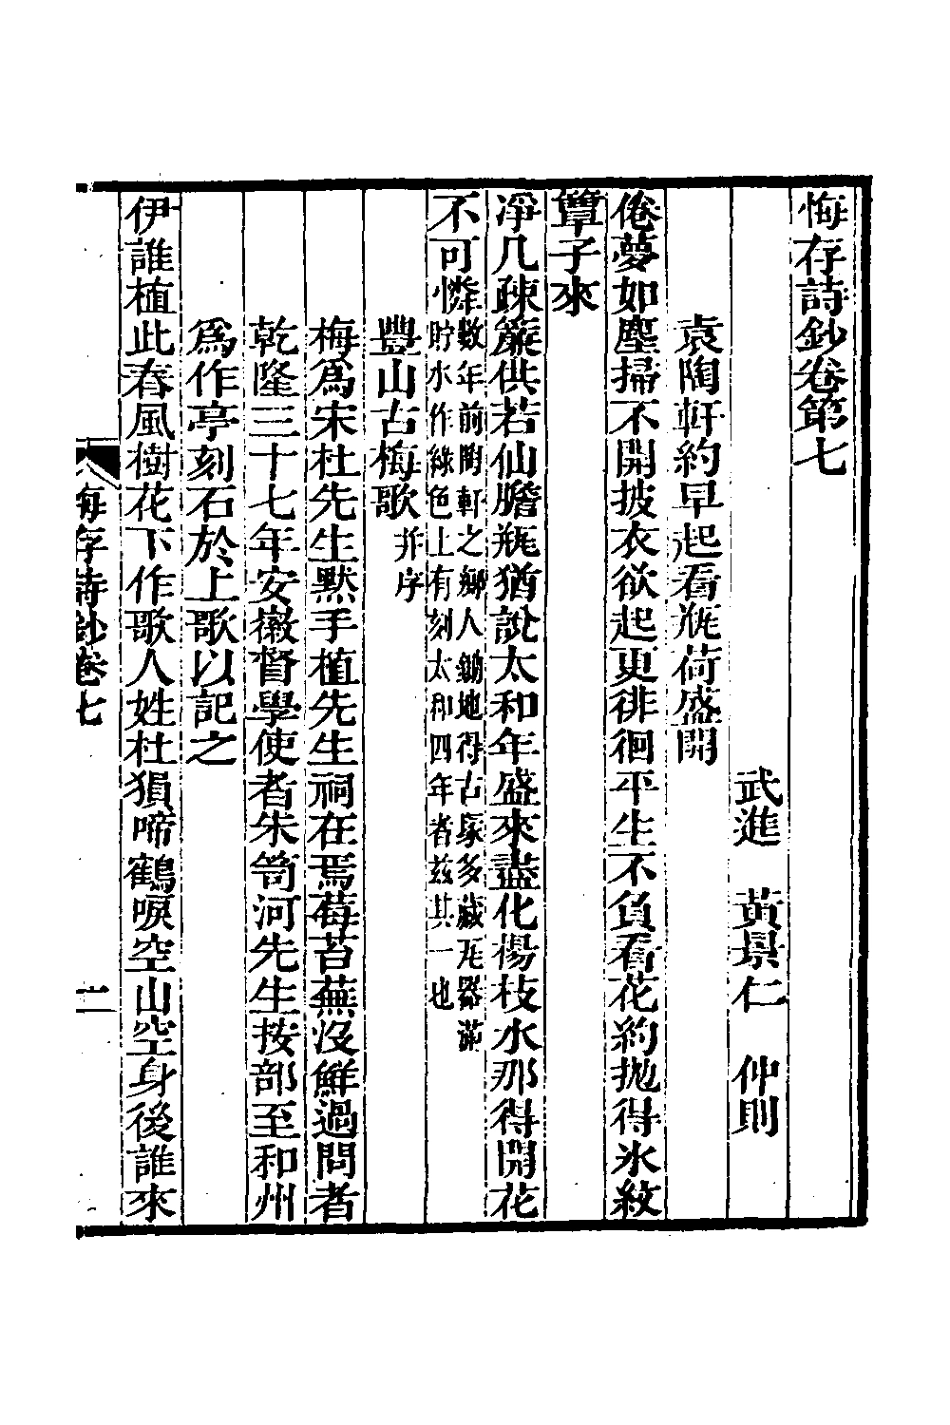 悔存詩鈔卷第七
武進　黃景仁　仲則
袁陶軒約早起看甁荷盛開
倦夢如塵掃不開披衣欲起更徘徊平生不負看花約拋得氷紋
簟子來
淨几疎簾供若仙膽甁猶說太和年盛來盡化楊枝水那得開花
不可憐數年前陶軒之鄉人鋤地得古冢多藏瓦器滿
貯水作綠色上有刻太和四年者兹其一也
豐山古梅歌并序
梅爲宋杜先生黙手植先生祠在焉莓苔蕪沒鮮過問者
乾隆三十七年安徽督學使者朱笥河先生按部至和州
爲作亭刻石於上歌以記之
伊誰植此春風樹花下作歌人姓杜猿啼鶴唳空山空身後誰來
悔存詩鈔卷七
一